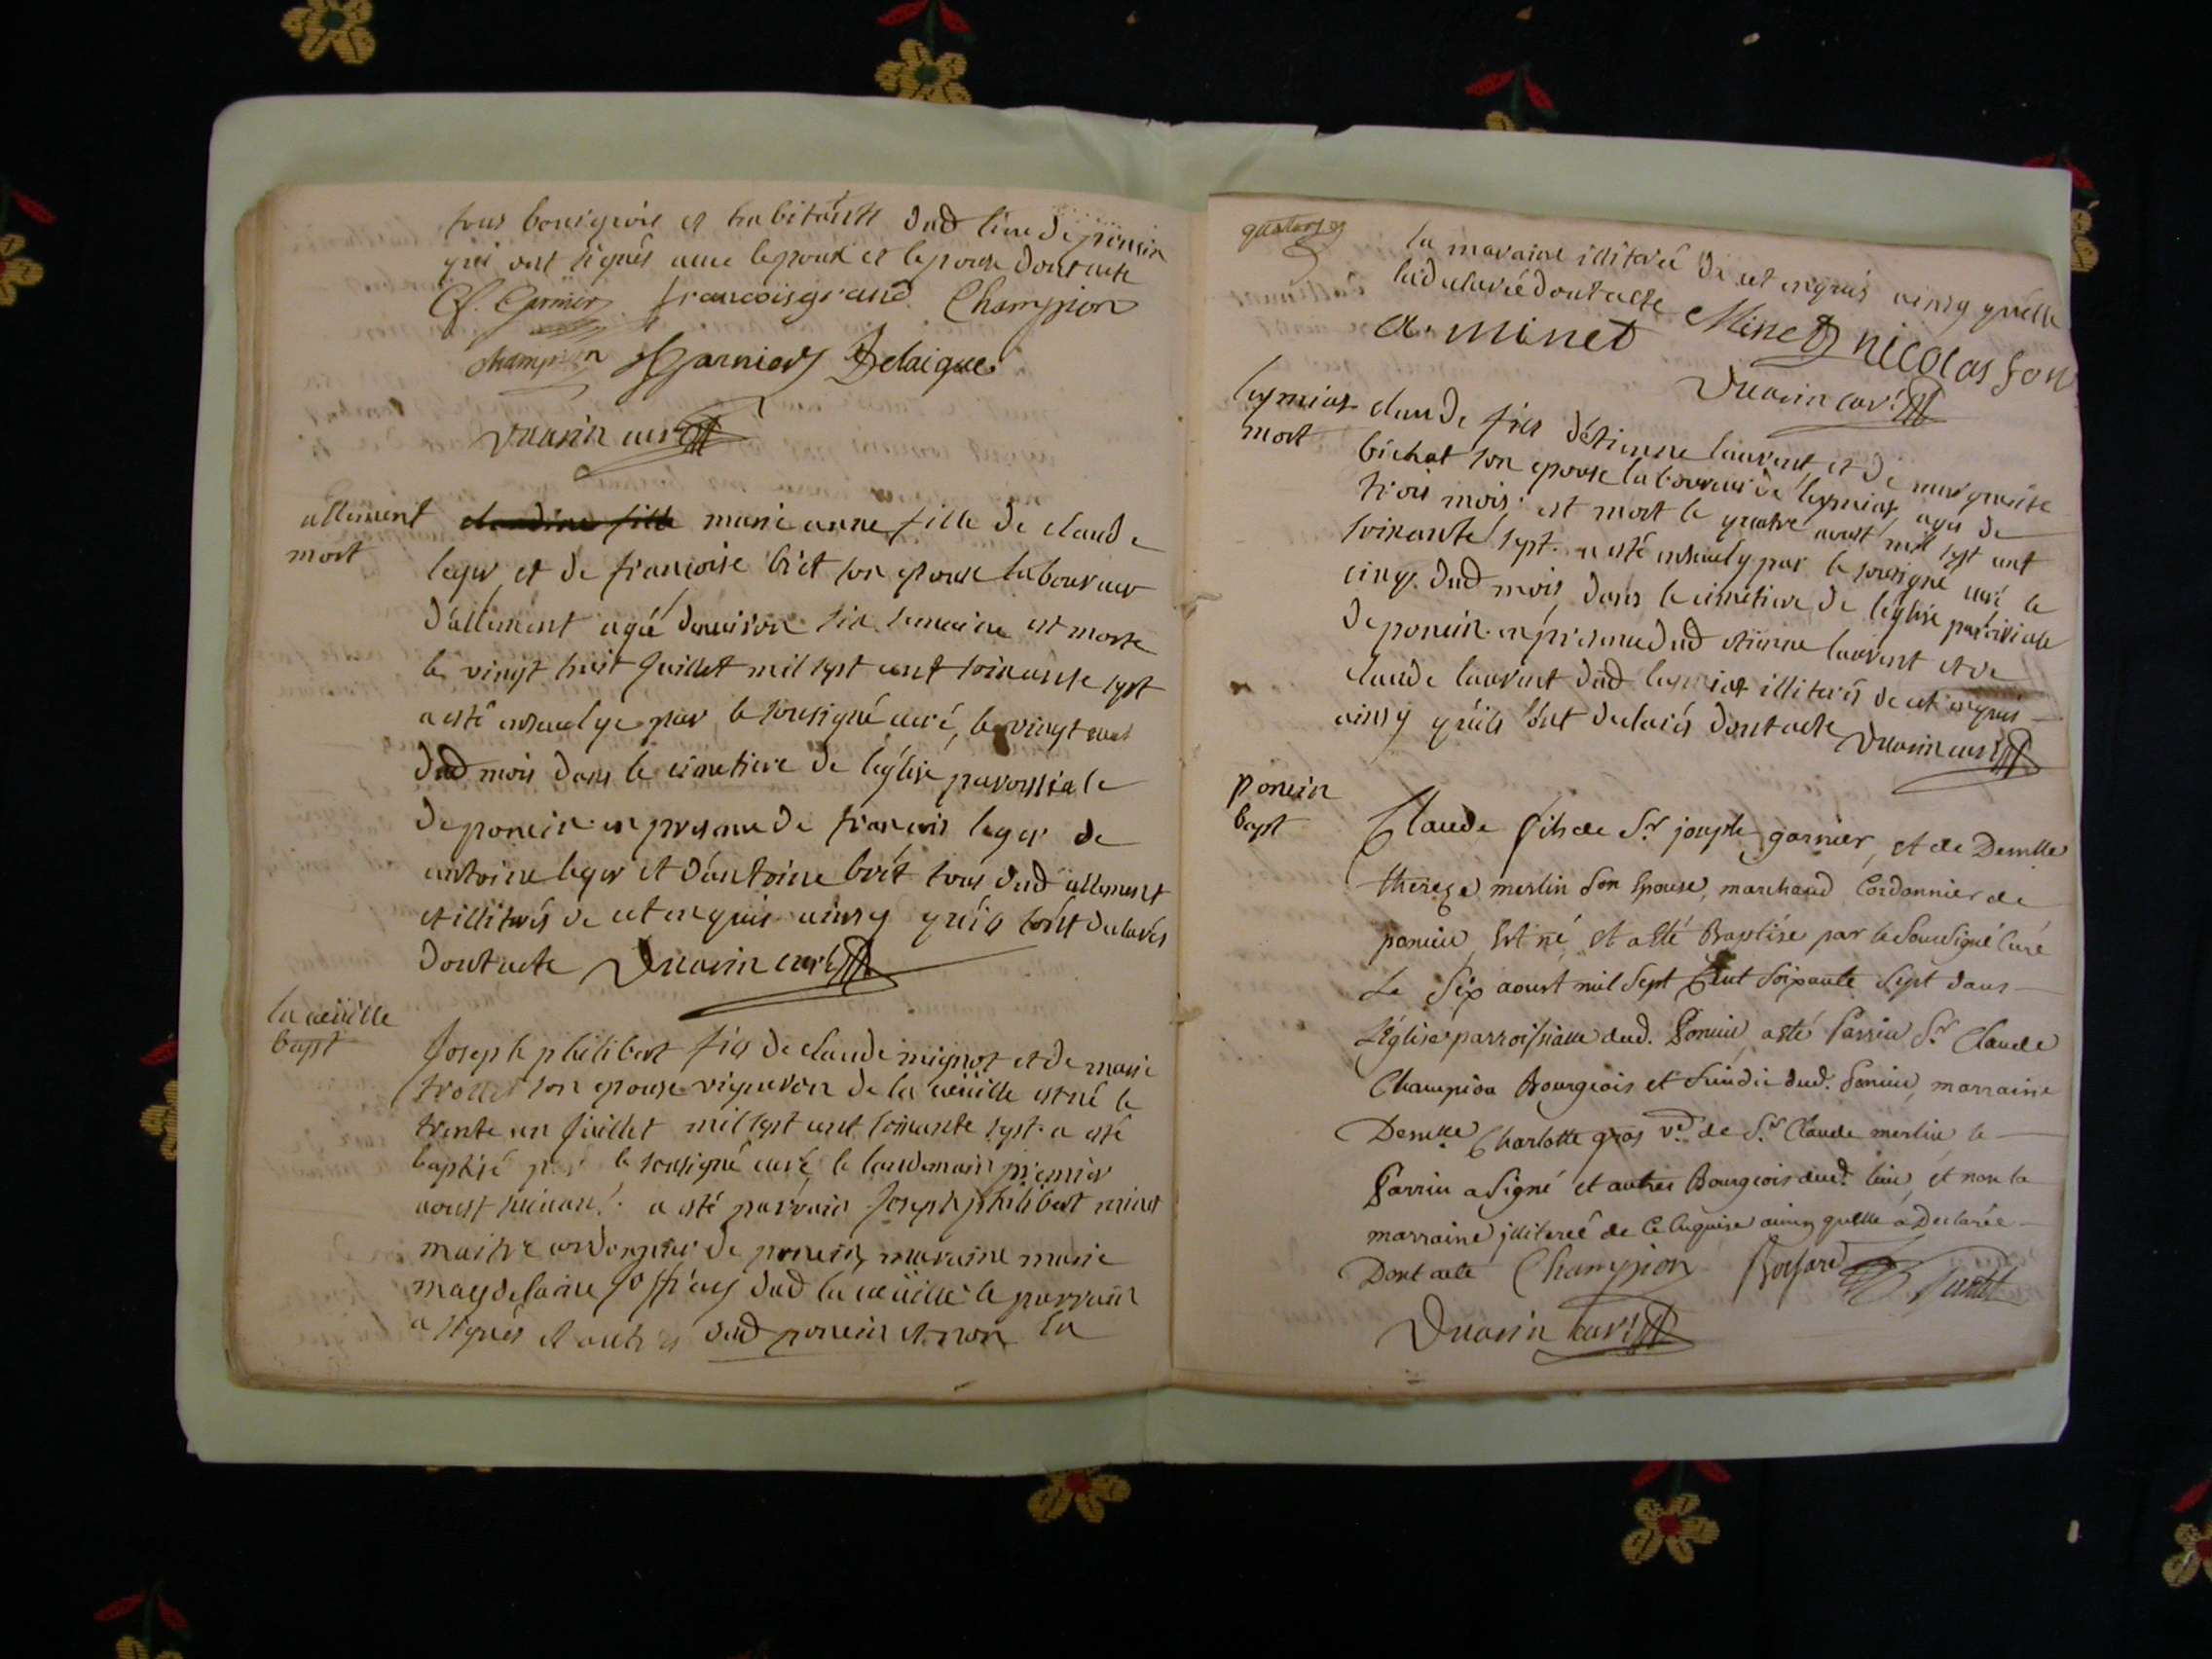 tous bourgeois et habitants dud lieu de poncin
qui ont signés avec lepoux et lepouse dont acte
Cl. Garnier francois grand Champion
champion Garnier Delaigue
Duarin curé
allement
mort
claudine fille marie anne fille de claude
leger et de francoise briet son epouse laboureur
d'allement agée denviron six semaine est morte
le vingt huit Juillet mil sept cent soixante sept
a esté ensevelye par le sousigné curé, le vingt neuf
dud mois dans le cimetiere de l'église paroissiale
de poncin en presence de francois leger de
antoine leger et d'antoine briet tous dud allement
et illiterés de ce enquis ainsy qu'ils l'ont declarés
dont acte Duarin curé
la cueuille
bapt
Joseph philibert fils de claude mignot et de marie
trollet son epouse vigneron de la cueuille est né le
trente un Juillet mil sept cent soixante sept a esté
baptisé par le sousigné curé le landemain premier
aoust suivant. a esté parrain Joseph philibert minet
maitre cordonnier de poncin, maraine marie
magdelaine Joffray dud la cueuille le parrain
a signés et autres dud poncin et non la
quatorze
la maraine illiterée de cet enquis ainsy qu'elle
la declarée dont acte
a. minet Minet nicolas fon
Duarin curé
leymiat
mort
claude fils d'étienne laurent et de marguerite
bichat son epouse laboureur de leymiat agé de
trois mois est mort le quatre aoust mil sept cent
soixante sept. a esté ensevely par le sousigné curé le
cinq. dud mois dans le cimetiere de l'église paroissiale
de poncin en presence dud étienne laurent et de
claude laurent dud leymiat illiterés de cet enquis
ainsy qu'ils l'ont declarés dont acte Duarin curé
poncin
bapt
Claude fils de Sr joseph garnier, et de Demlle
therese merlin son Epouse, marchand Cordonnier de
poncin, Est né, et a Esté Baptisé par le Sousigné Curé
Le Six aoust mil Sept Cent Soixante Sept dans
L'Église parroissialle dud. Poncin, a esté Parrin Sr Claude
Champion Bourgeois et Sindic dud. Poncin, marraine
Demlle Charlotte gros vve de Sr Claude merlin, le
Parrin a Signé et autres Bourgeois dud. lieu, et non la
marraine jlliterée de Ce Enquise ainsy quelle a Declarée
Dont acte Champion Bossard
Duarin curé